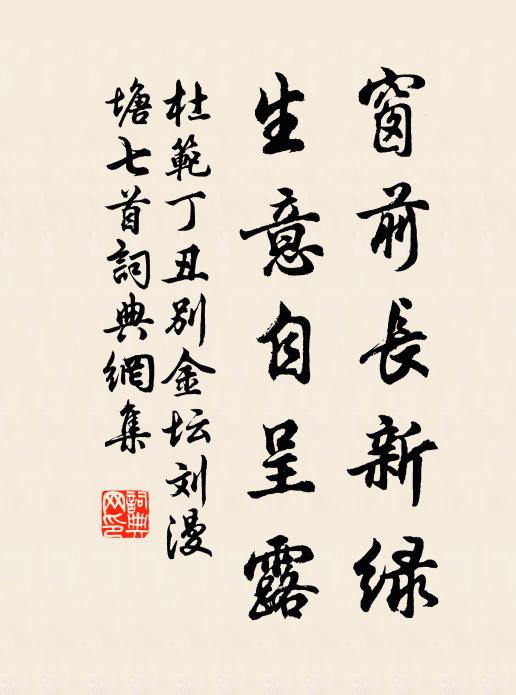 窗前長新緑
生意自呈露
杜範丁丑别金坛刘漫
塘七首詞典網集
詞典
网印